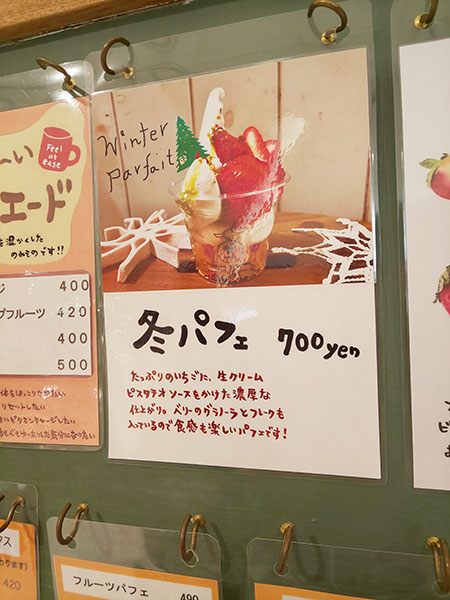 Feel
at
ease
〜い
エード
温かくした
のみものです!!
ジ 400
プフルーツ 420
400
500
リセットしたい
Winter
Parfait
冬パフェ 700yen
たっぷりのいちごに、生クリーム
ピスタチオソースもかけた濃厚な
仕上がり。ベリーのグラノーラとフレークも
入っているので食感も楽しいパフェです!
420
フルーツパフェ 490